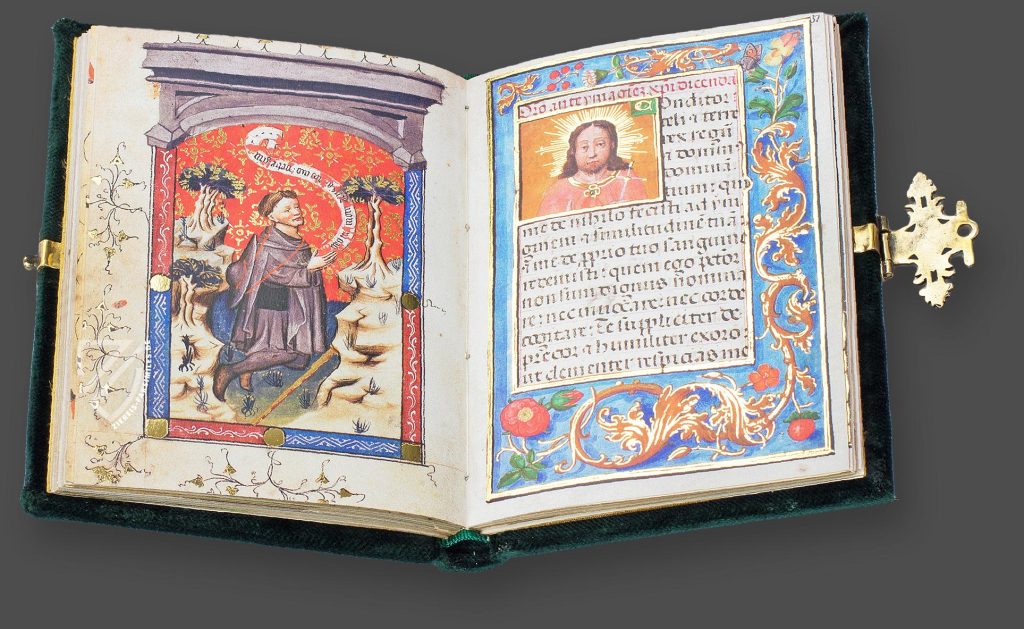 37
Oro ante ymagiez xpi dicenda
Onditor
celi & terre
rex regũ
& dominꝰ
domina
tium: qui
me de nihilo fecisti ad ymagi
ginem & similitudinẽ tuã
& me de proprio tuo sanguine
redemisti: quem ego pctor
non sum dignus nomina
re: nec inuocare: nec corde
cogitare: te suppliciter de
precor & humiliter exoro
ut clementer respicias me
ZIEREIS FACSIMILES